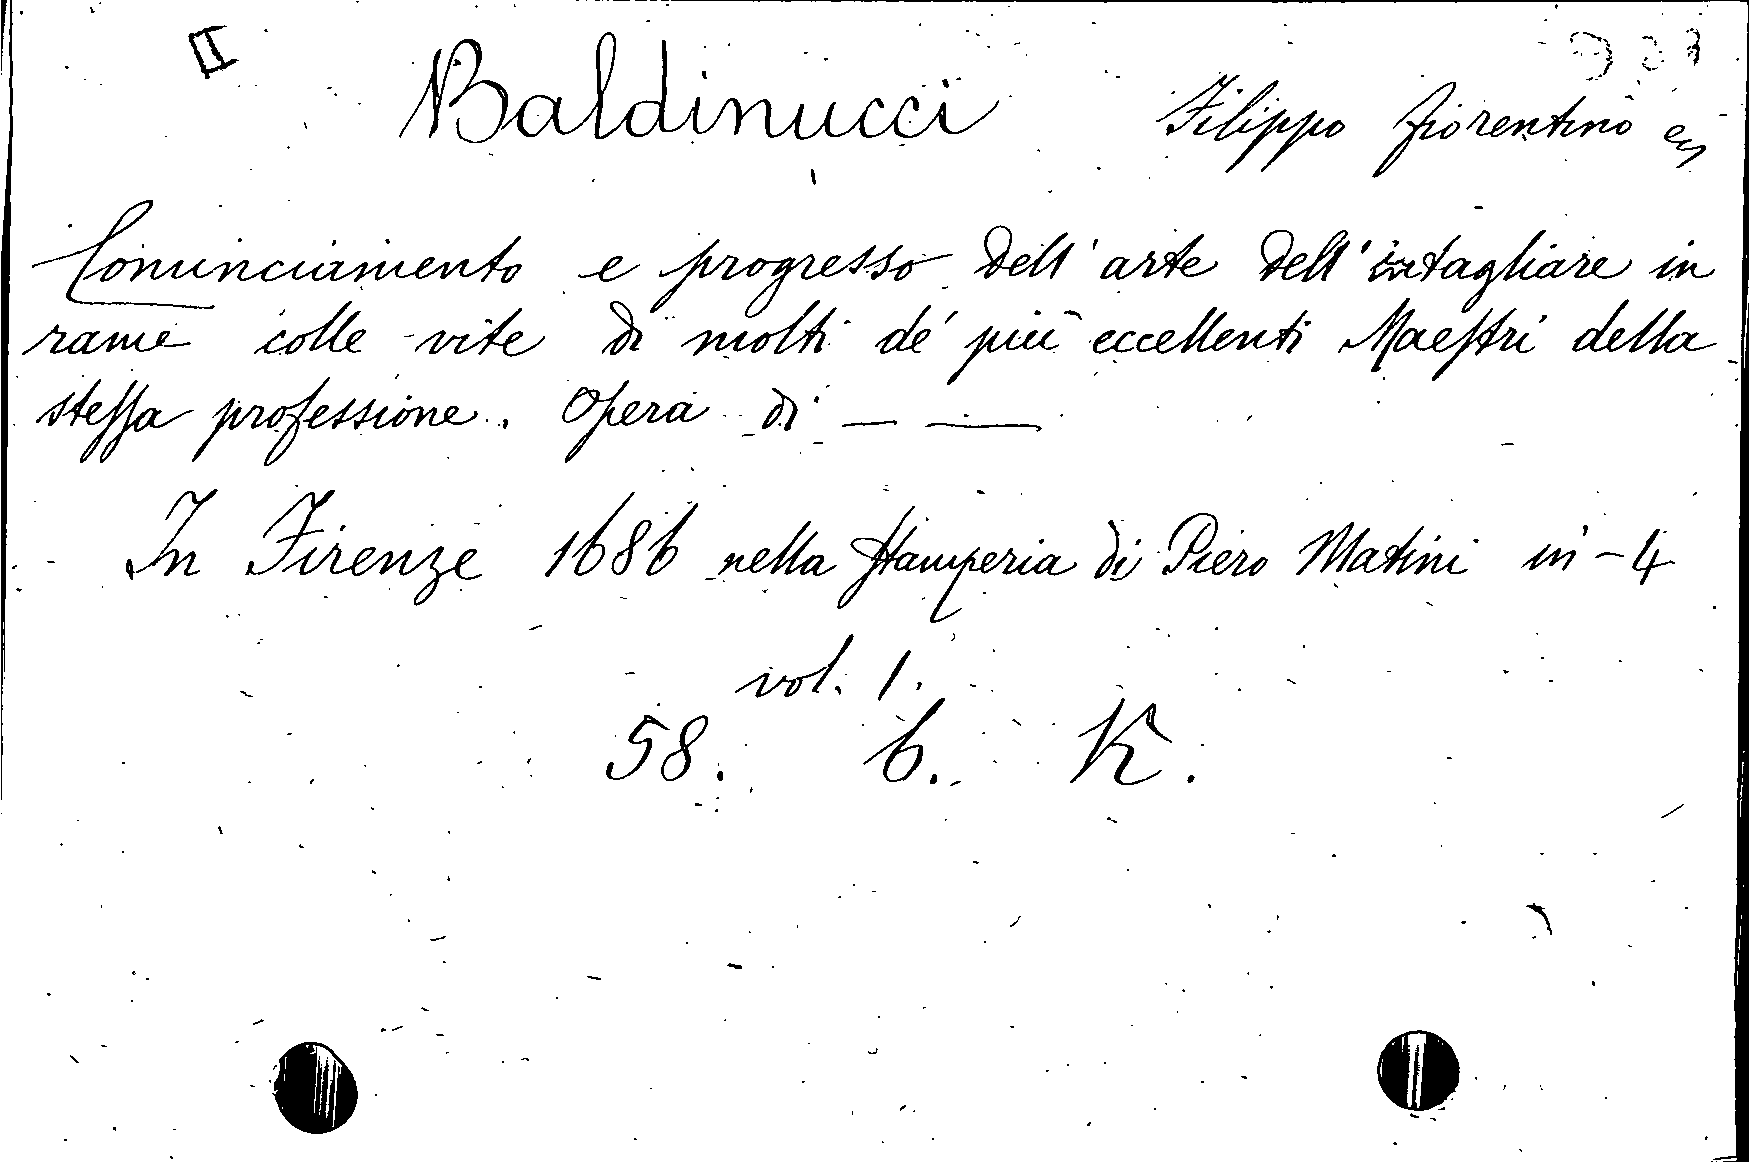 II
Baldinucci Filippo fiorentino
Cominciamento e progresso dell' arte dell' intagliare in
rame colle vite di molti de' più eccellenti Maeſtri della
steſſa professione. Opera di — —
In Firenze 1686 nella ſtamperia di Piero Matini in - 4
vol. 1.
58. b. K.